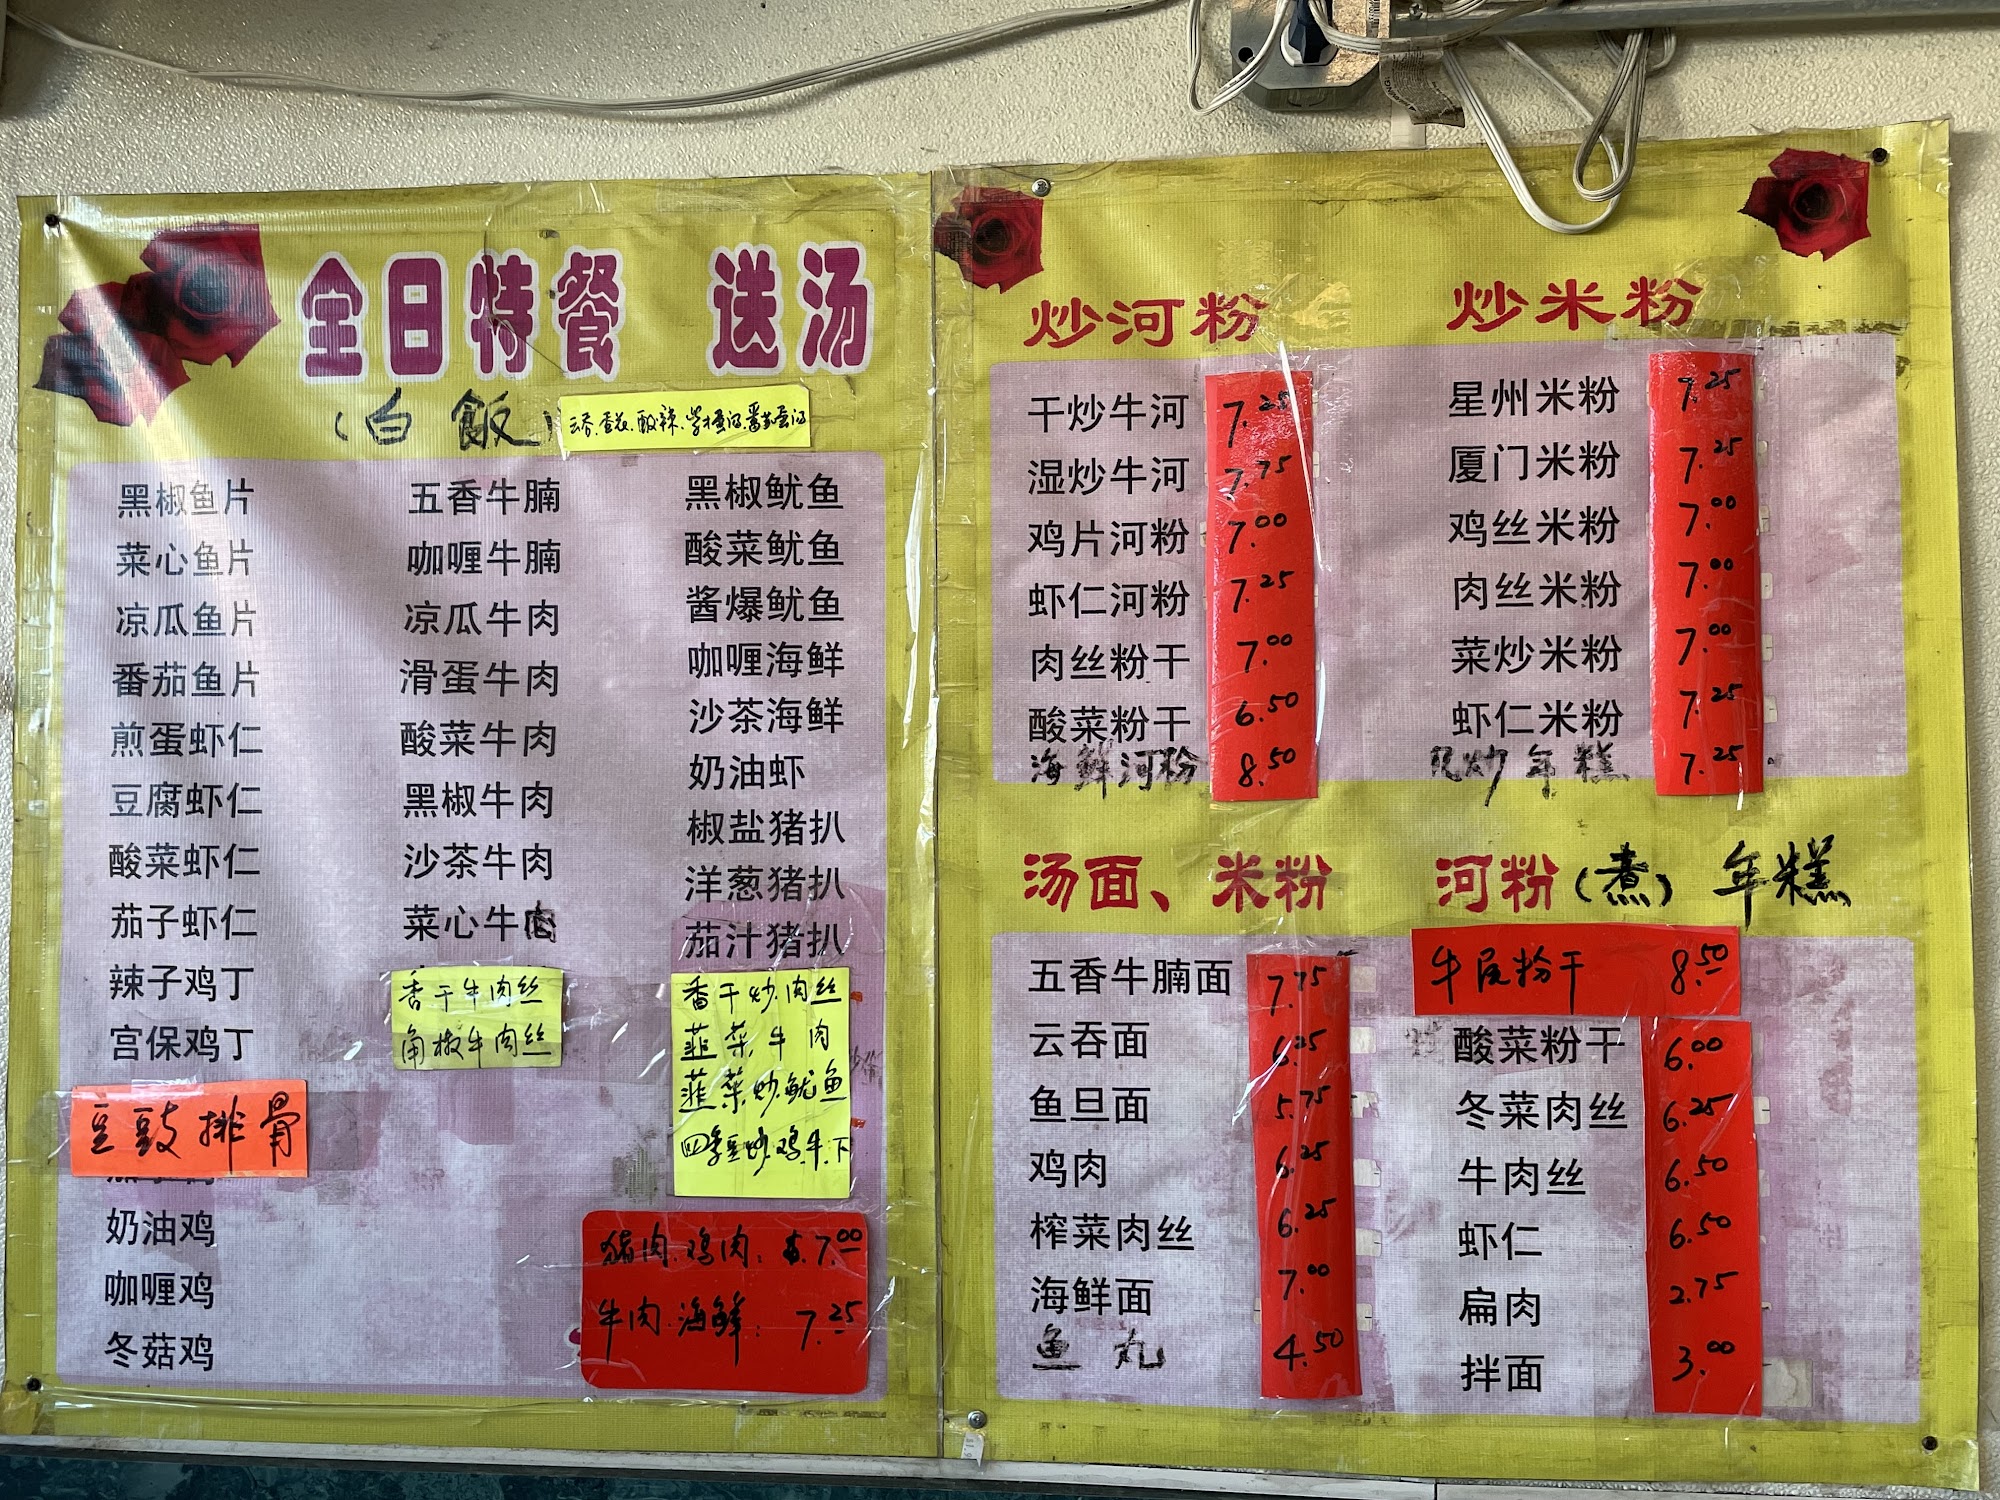 全日特餐 送汤
(白飯)
黑椒鱼片
菜心鱼片
凉瓜鱼片
番茄鱼片
煎蛋虾仁
豆腐虾仁
酸菜虾仁
茄子虾仁
辣子鸡丁
宫保鸡丁
豆豉排骨
奶油鸡
咖喱鸡
冬菇鸡
五香牛腩
咖喱牛腩
凉瓜牛肉
滑蛋牛肉
酸菜牛肉
黑椒牛肉
沙茶牛肉
菜心牛肉
香干牛肉丝
角椒牛肉丝
黑椒鱿鱼
酸菜鱿鱼
酱爆鱿鱼
咖喱海鲜
沙茶海鲜
奶油虾
椒盐猪扒
洋葱猪扒
茄汁猪扒
香干炒肉丝
韮菜牛肉
韮菜炒鱿鱼
四季豆炒鸡.牛.下
猪肉.鸡肉: $7.00
牛肉.海鲜: 7.25
炒河粉
干炒牛河 7.25
湿炒牛河 7.75
鸡片河粉 7.00
虾仁河粉 7.25
肉丝粉干 7.00
酸菜粉干 6.50
海鲜河粉 8.50
炒米粉
星州米粉 7.25
厦门米粉 7.25
鸡丝米粉 7.00
肉丝米粉 7.00
菜炒米粉 7.00
虾仁米粉 7.25
炒年糕 7.25
汤面、米粉 河粉(煮)年糕
五香牛腩面 7.75
云吞面 6.25
鱼旦面 5.75
鸡肉 6.25
榨菜肉丝 6.25
海鲜面 7.00
鱼丸 4.50
牛尾粉干 8.50
酸菜粉干 6.00
冬菜肉丝 6.25
牛肉丝 6.50
虾仁 6.50
扁肉 2.75
拌面 3.00